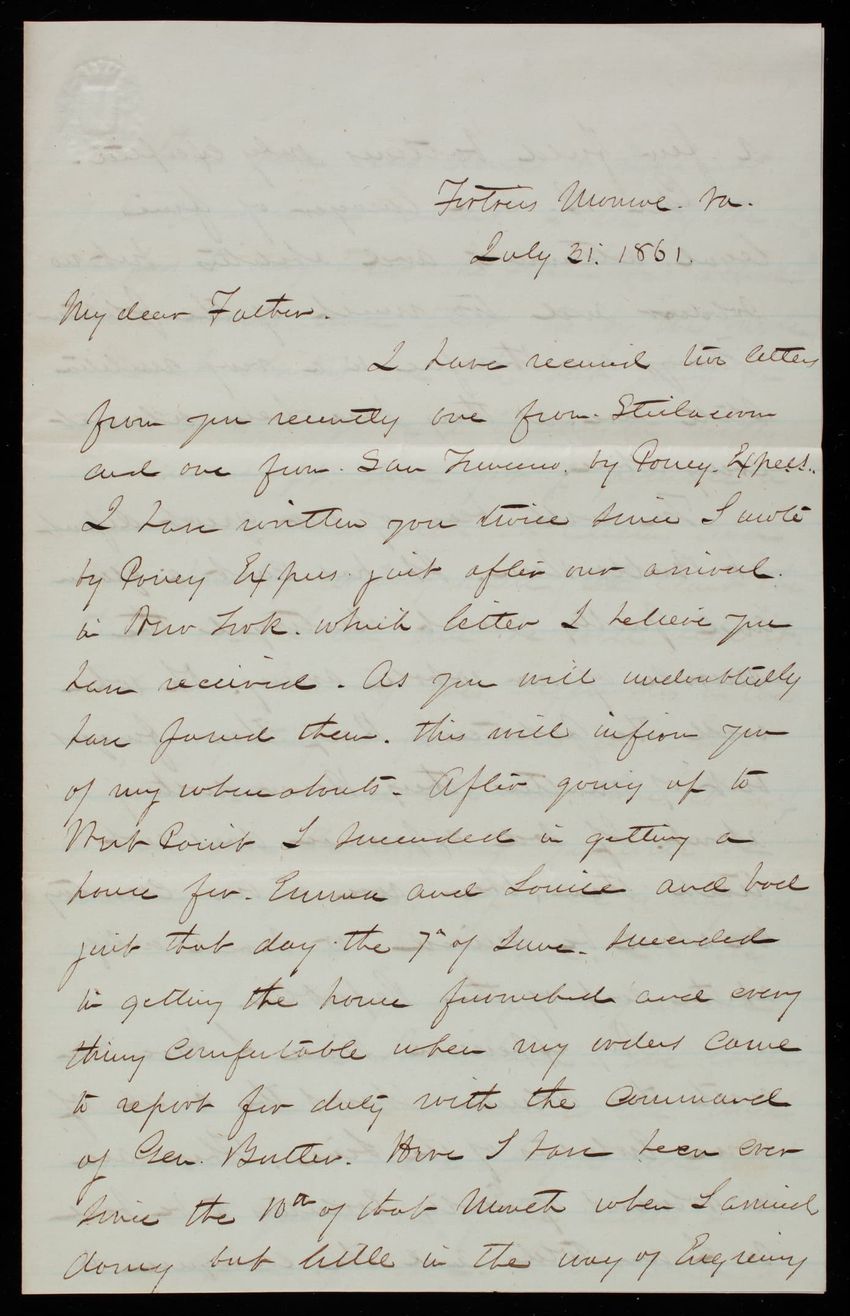 Fortress Monroe. Va.
July 21. 1861.
My dear Father.
I have received two letters
from you recently one from Steilacoom
and one from San Francisco. by Poney Express.
I have written you twice since I wrote
by Poney Express just after our arrival
in New York. which letter I believe you
have received. As you will undoubtedly
have found them. this will inform you
of my whereabouts. After going up to
West Point I succeeded in getting a
house for Emma and Louise and had
just that day the 7th of June. succeeded
in getting the house furnished and every
thing comfortable when my orders came
to report for duty with the command
of Gen. Butler. Here I have been ever
since the 10th of that month when I arrived
doing but little in the way of Engineering